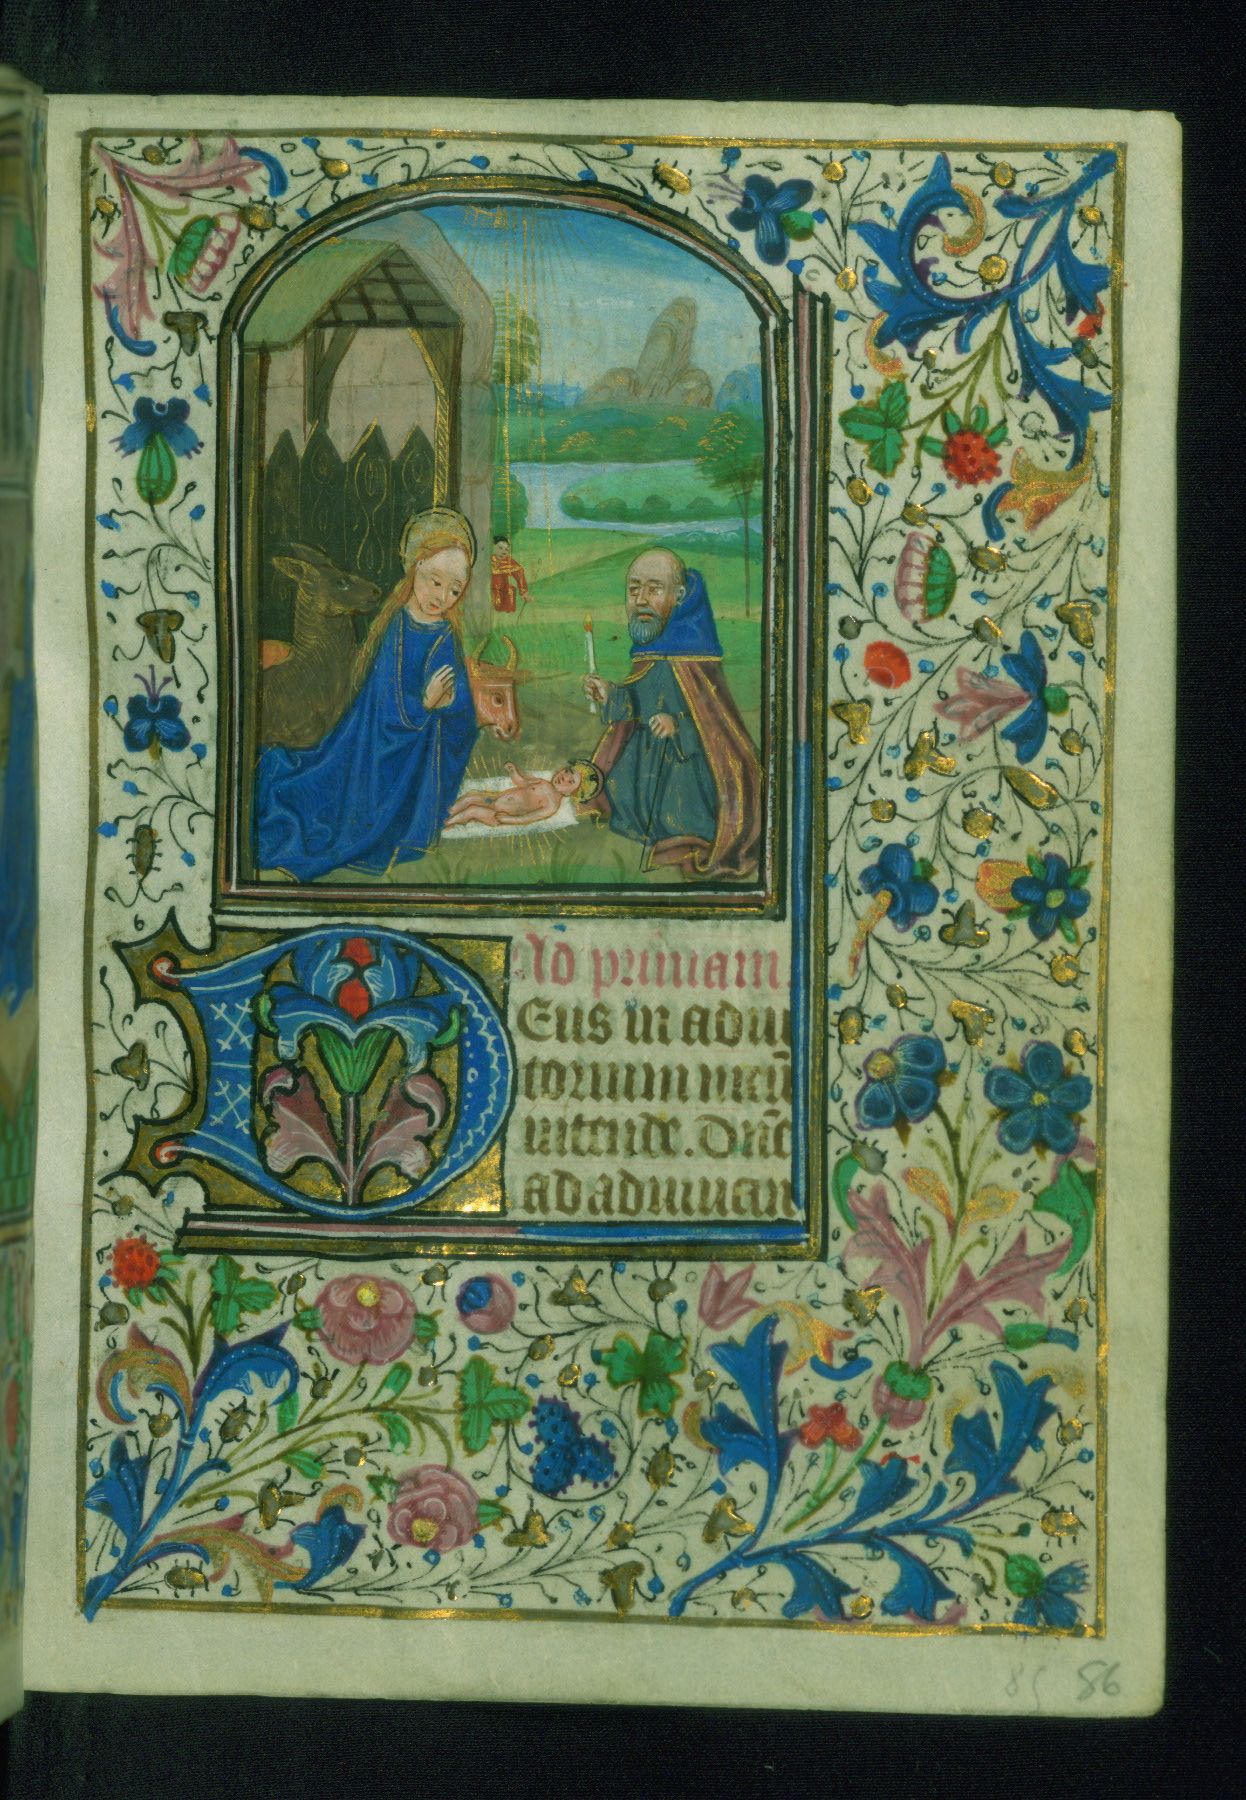 Ad primam.
Deus in adiu
torium meū
intende. Dn̄e
ad adiuuan
85 86